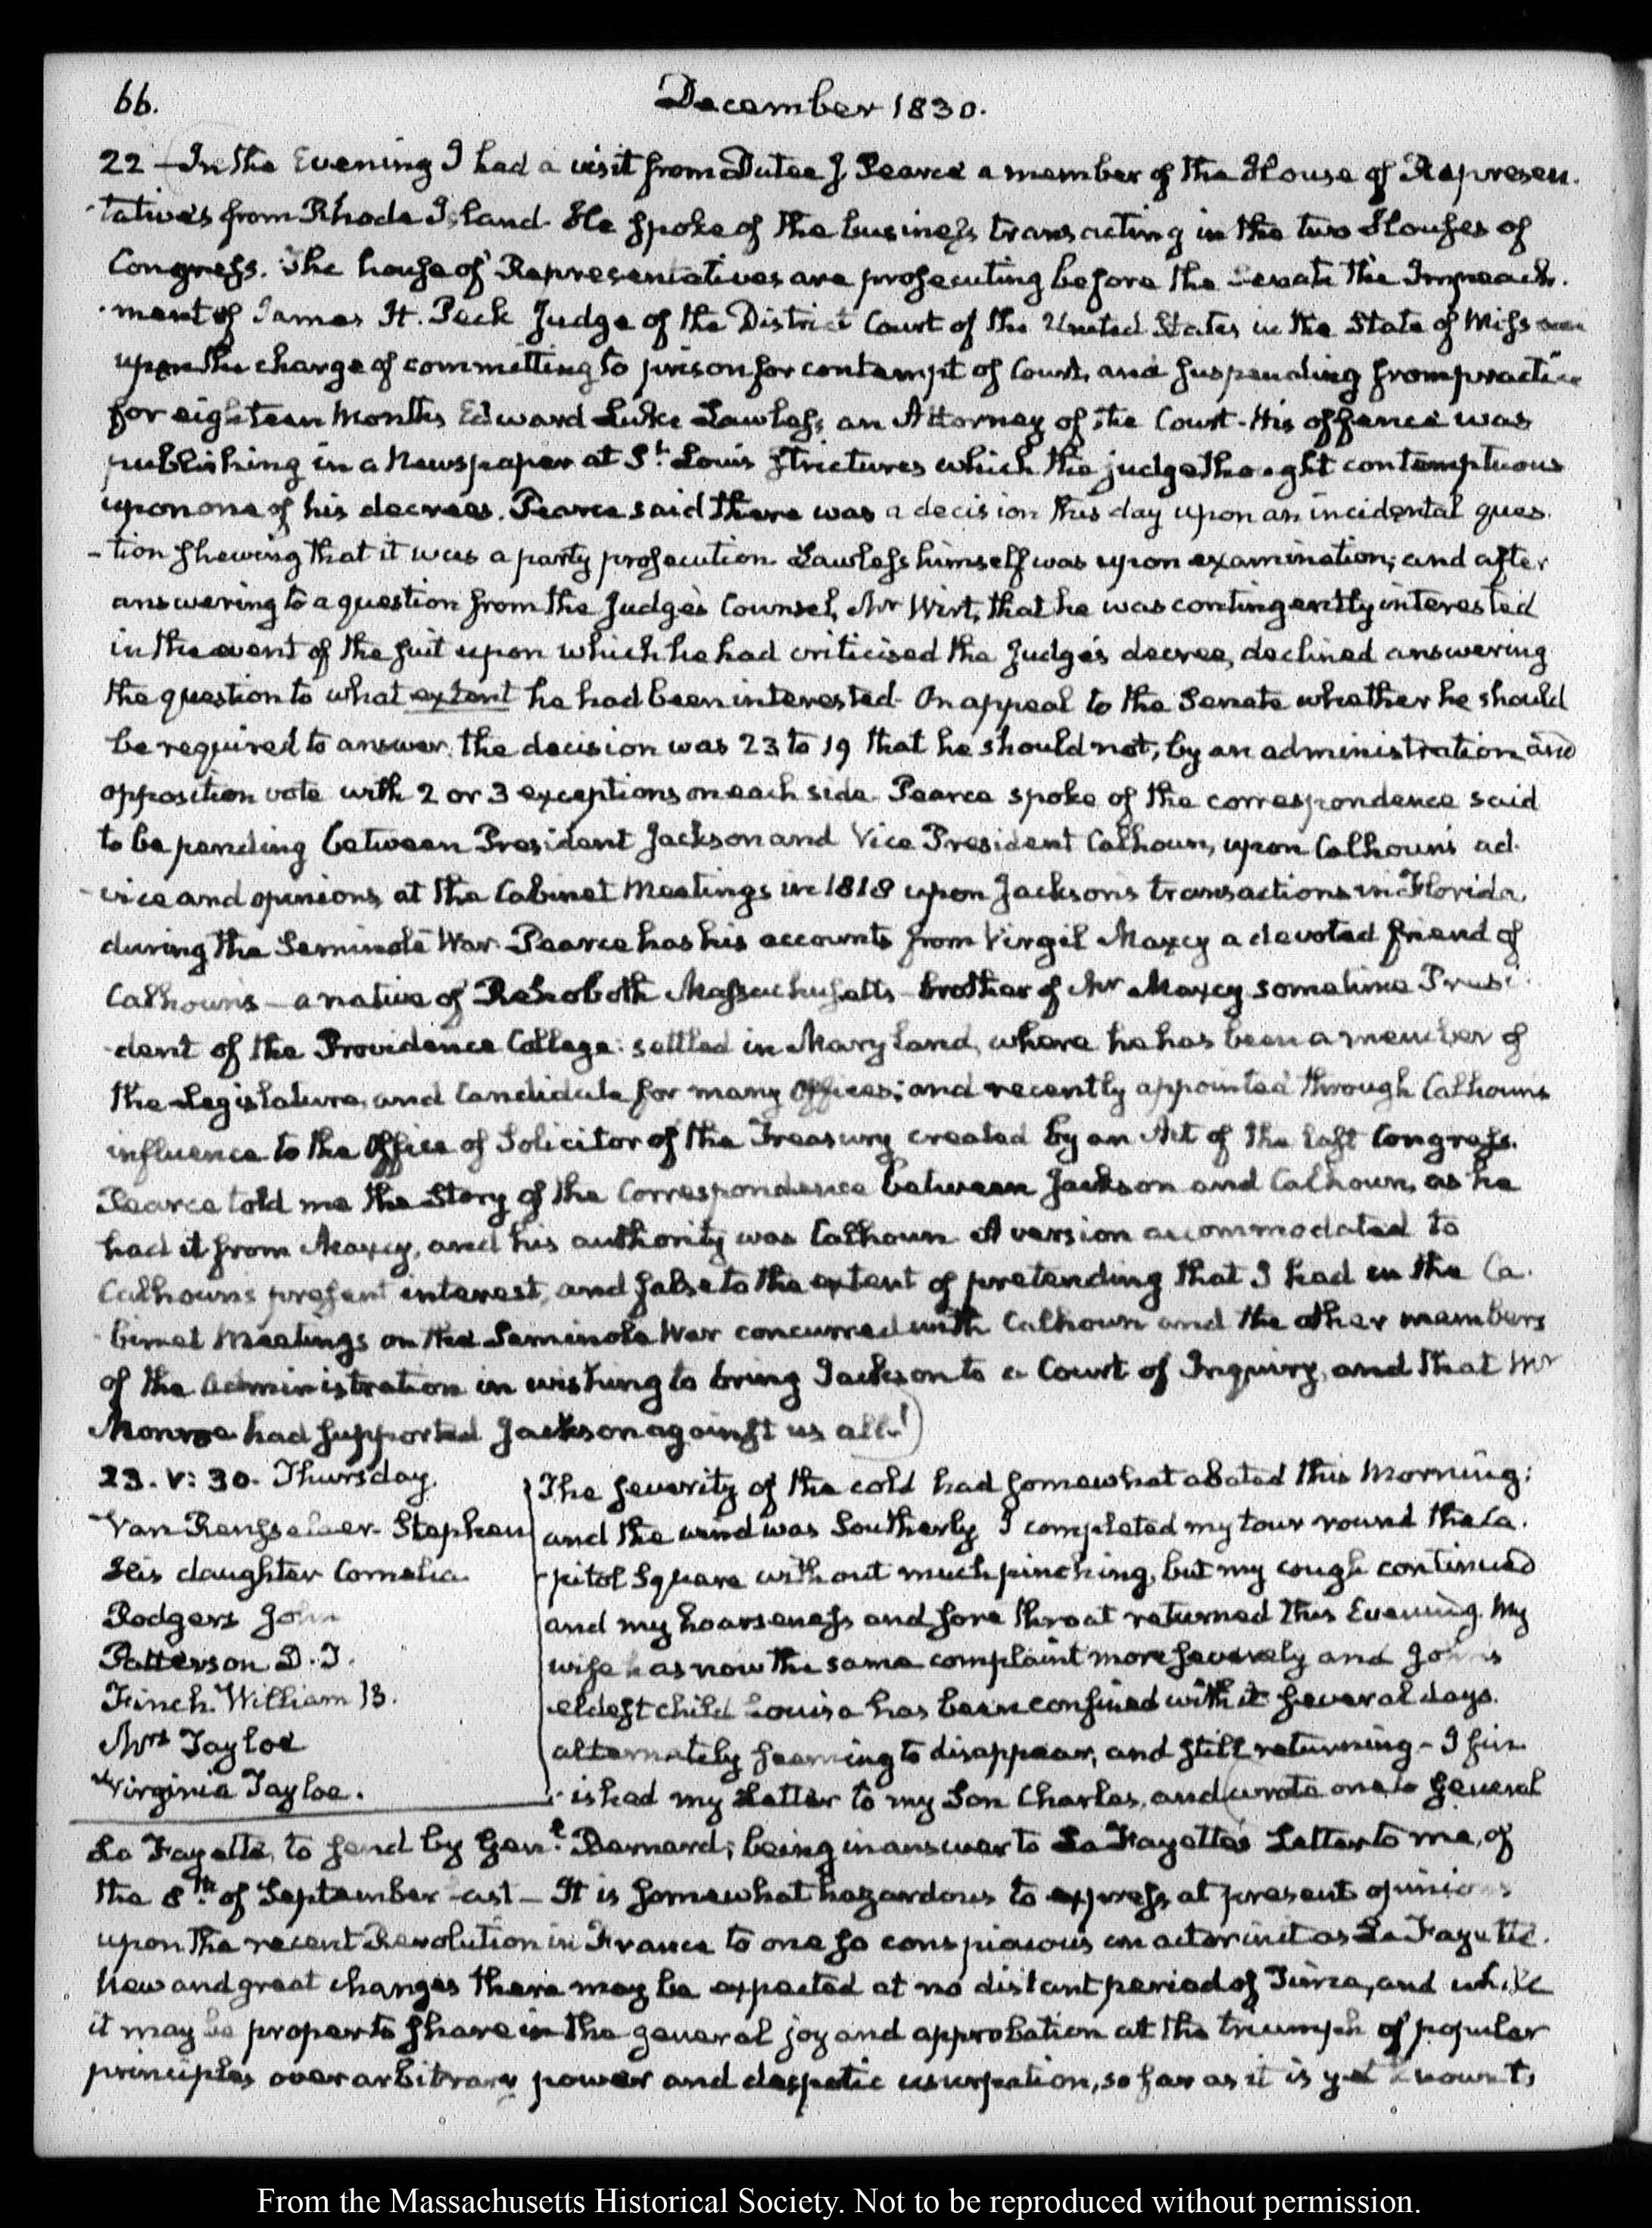 66.
December 1830.
22 — In the Evening I had a visit from Dutee J. Pearce a member of the House of Represen-
-tatives from Rhode Island. He spoke of the business transacting in the two Houses of
Congress. The house of Representatives are prosecuting before the Senate the Impeach-
-ment of James H. Peck Judge of the District Court of the United States in the State of Missouri
upon the charge of committing to prison for contempt of Court, and suspending from practice
for eighteen Months Edward Luke Lawless an Attorney of the Court. His offence was
publishing in a Newspaper at St. Louis strictures which the judge thought contemptuous
upon one of his decrees. Pearce said there was a decision this day upon an incidental ques-
-tion shewing that it was a party prosecution. Lawless himself was upon examination; and after
answering to a question from the Judge's Counsel, Mr Wirt, that he was contingently interested
in the event of the suit upon which he had criticised the Judge's decree, declined answering
the question to what extent he had been interested. On appeal to the Senate whether he should
be required to answer, the decision was 23 to 19 that he should not; by an administration and
opposition vote with 2 or 3 exceptions on each side. Pearce spoke of the correspondence said
to be pending between President Jackson and Vice President Calhoun, upon Calhoun's ad-
-vice and opinions at the Cabinet Meetings in 1818 upon Jackson's transactions in Florida,
during the Seminole War. Pearce has his accounts from Virgil Maxcy a devoted friend of
Calhoun's — a native of Rehoboth Massachusetts — brother of Mr Maxcy sometime Presi-
-dent of the Providence College: settled in Maryland, where he has been a member of
the Legislature, and Candidate for many Offices; and recently appointed through Calhoun's
influence to the Office of Solicitor of the Treasury created by an Act of the last Congress.
Pearce told me the Story of the Correspondence between Jackson and Calhoun, as he
had it from Maxcy, and his authority was Calhoun. A version accommodated to
Calhoun's present interest, and false to the extent of pretending that I had in the Ca-
-binet Meetings on the Seminole War concurred with Calhoun and the other members
of the Administration in wishing to bring Jackson to a Court of Inquiry, and that Mr
Monroe had supported Jackson against us all!)
23. V: 30. Thursday.
Van Rensselaer. Stephen
His daughter Cornelia.
Rodgers John
Patterson D. T.
Finch. William B.
Mrs Tayloe
Virginia Tayloe.
The severity of the cold had somewhat abated this Morning;
and the wind was Southerly. I completed my tour round the Ca-
-pitol Square without much pinching, but my cough continued
and my hoarseness and sore throat returned this Evening. My
wife has now the same complaint more severely and John's
eldest child Louisa has been confined with it several days.
alternately seeming to disappear, and still returning — I fin-
-ished my Letter to my Son Charles, and (wrote one to General
La Fayette, to send by Genl. Bernard; being in answer to La Fayette's Letter to me, of
the 8th. of September last — It is somewhat hazardous to express at present opinions
upon the recent Revolution in France to one so conspicuous an actor in it as La Fayette.
New and great changes there may be expected at no distant period of Time, and while
it may be proper to share in the general joy and approbation at the triumph of popular
principles over arbitrary power and despotic usurpation, so far as it is yet known to
From the Massachusetts Historical Society. Not to be reproduced without permission.